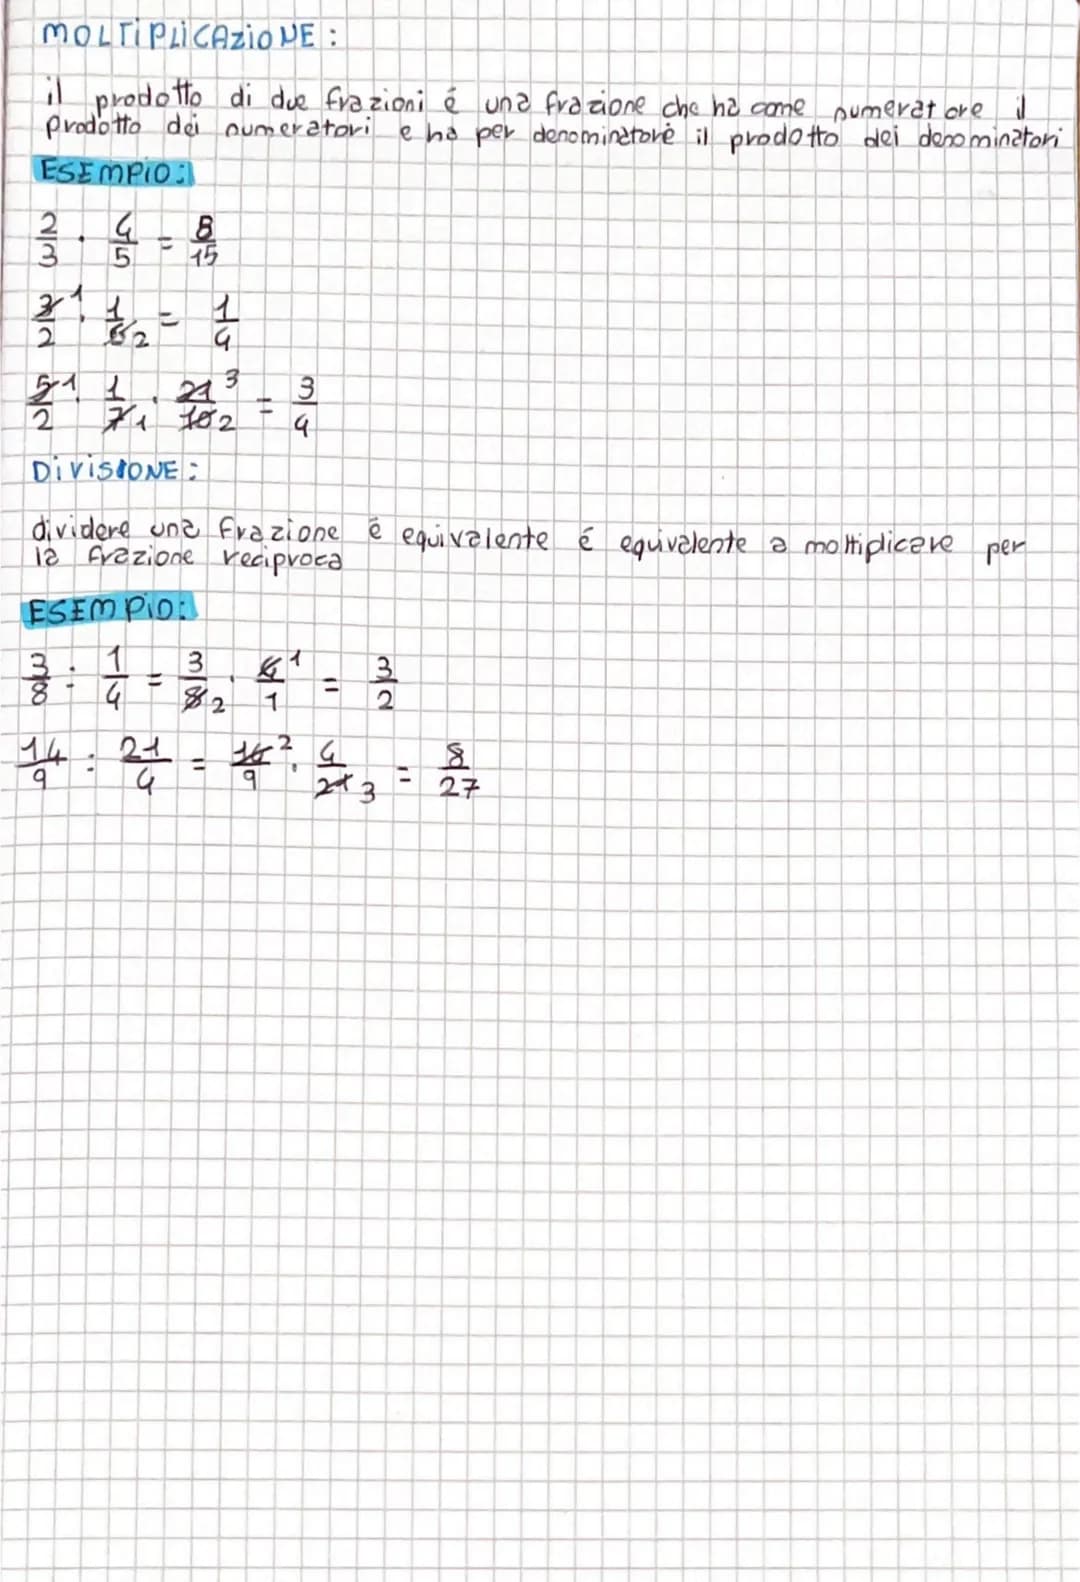 MOLTIPLICAZIONE:
il prodotto di due frazioni é una frazione che ha come numeratore il
prodotto dei numeratori e ha per denominatore il prodotto dei denominatori
ESEMPIO:
2/3 · 4/5 = 8/15
3/2 1 · 1/6 2 = 1/4
5/2 1 · 1/7 1 · 21/10 3 2 = 3/4
DIVISIONE:
dividere una frazione é equivalente é equivalente a moltiplicare per
la frazione reciproca
ESEMPIO:
3/8 : 1/4 = 3/8 2 · 4/1 1 = 3/2
14/9 : 21/4 = 14/9 2 · 4/21 3 = 8/27